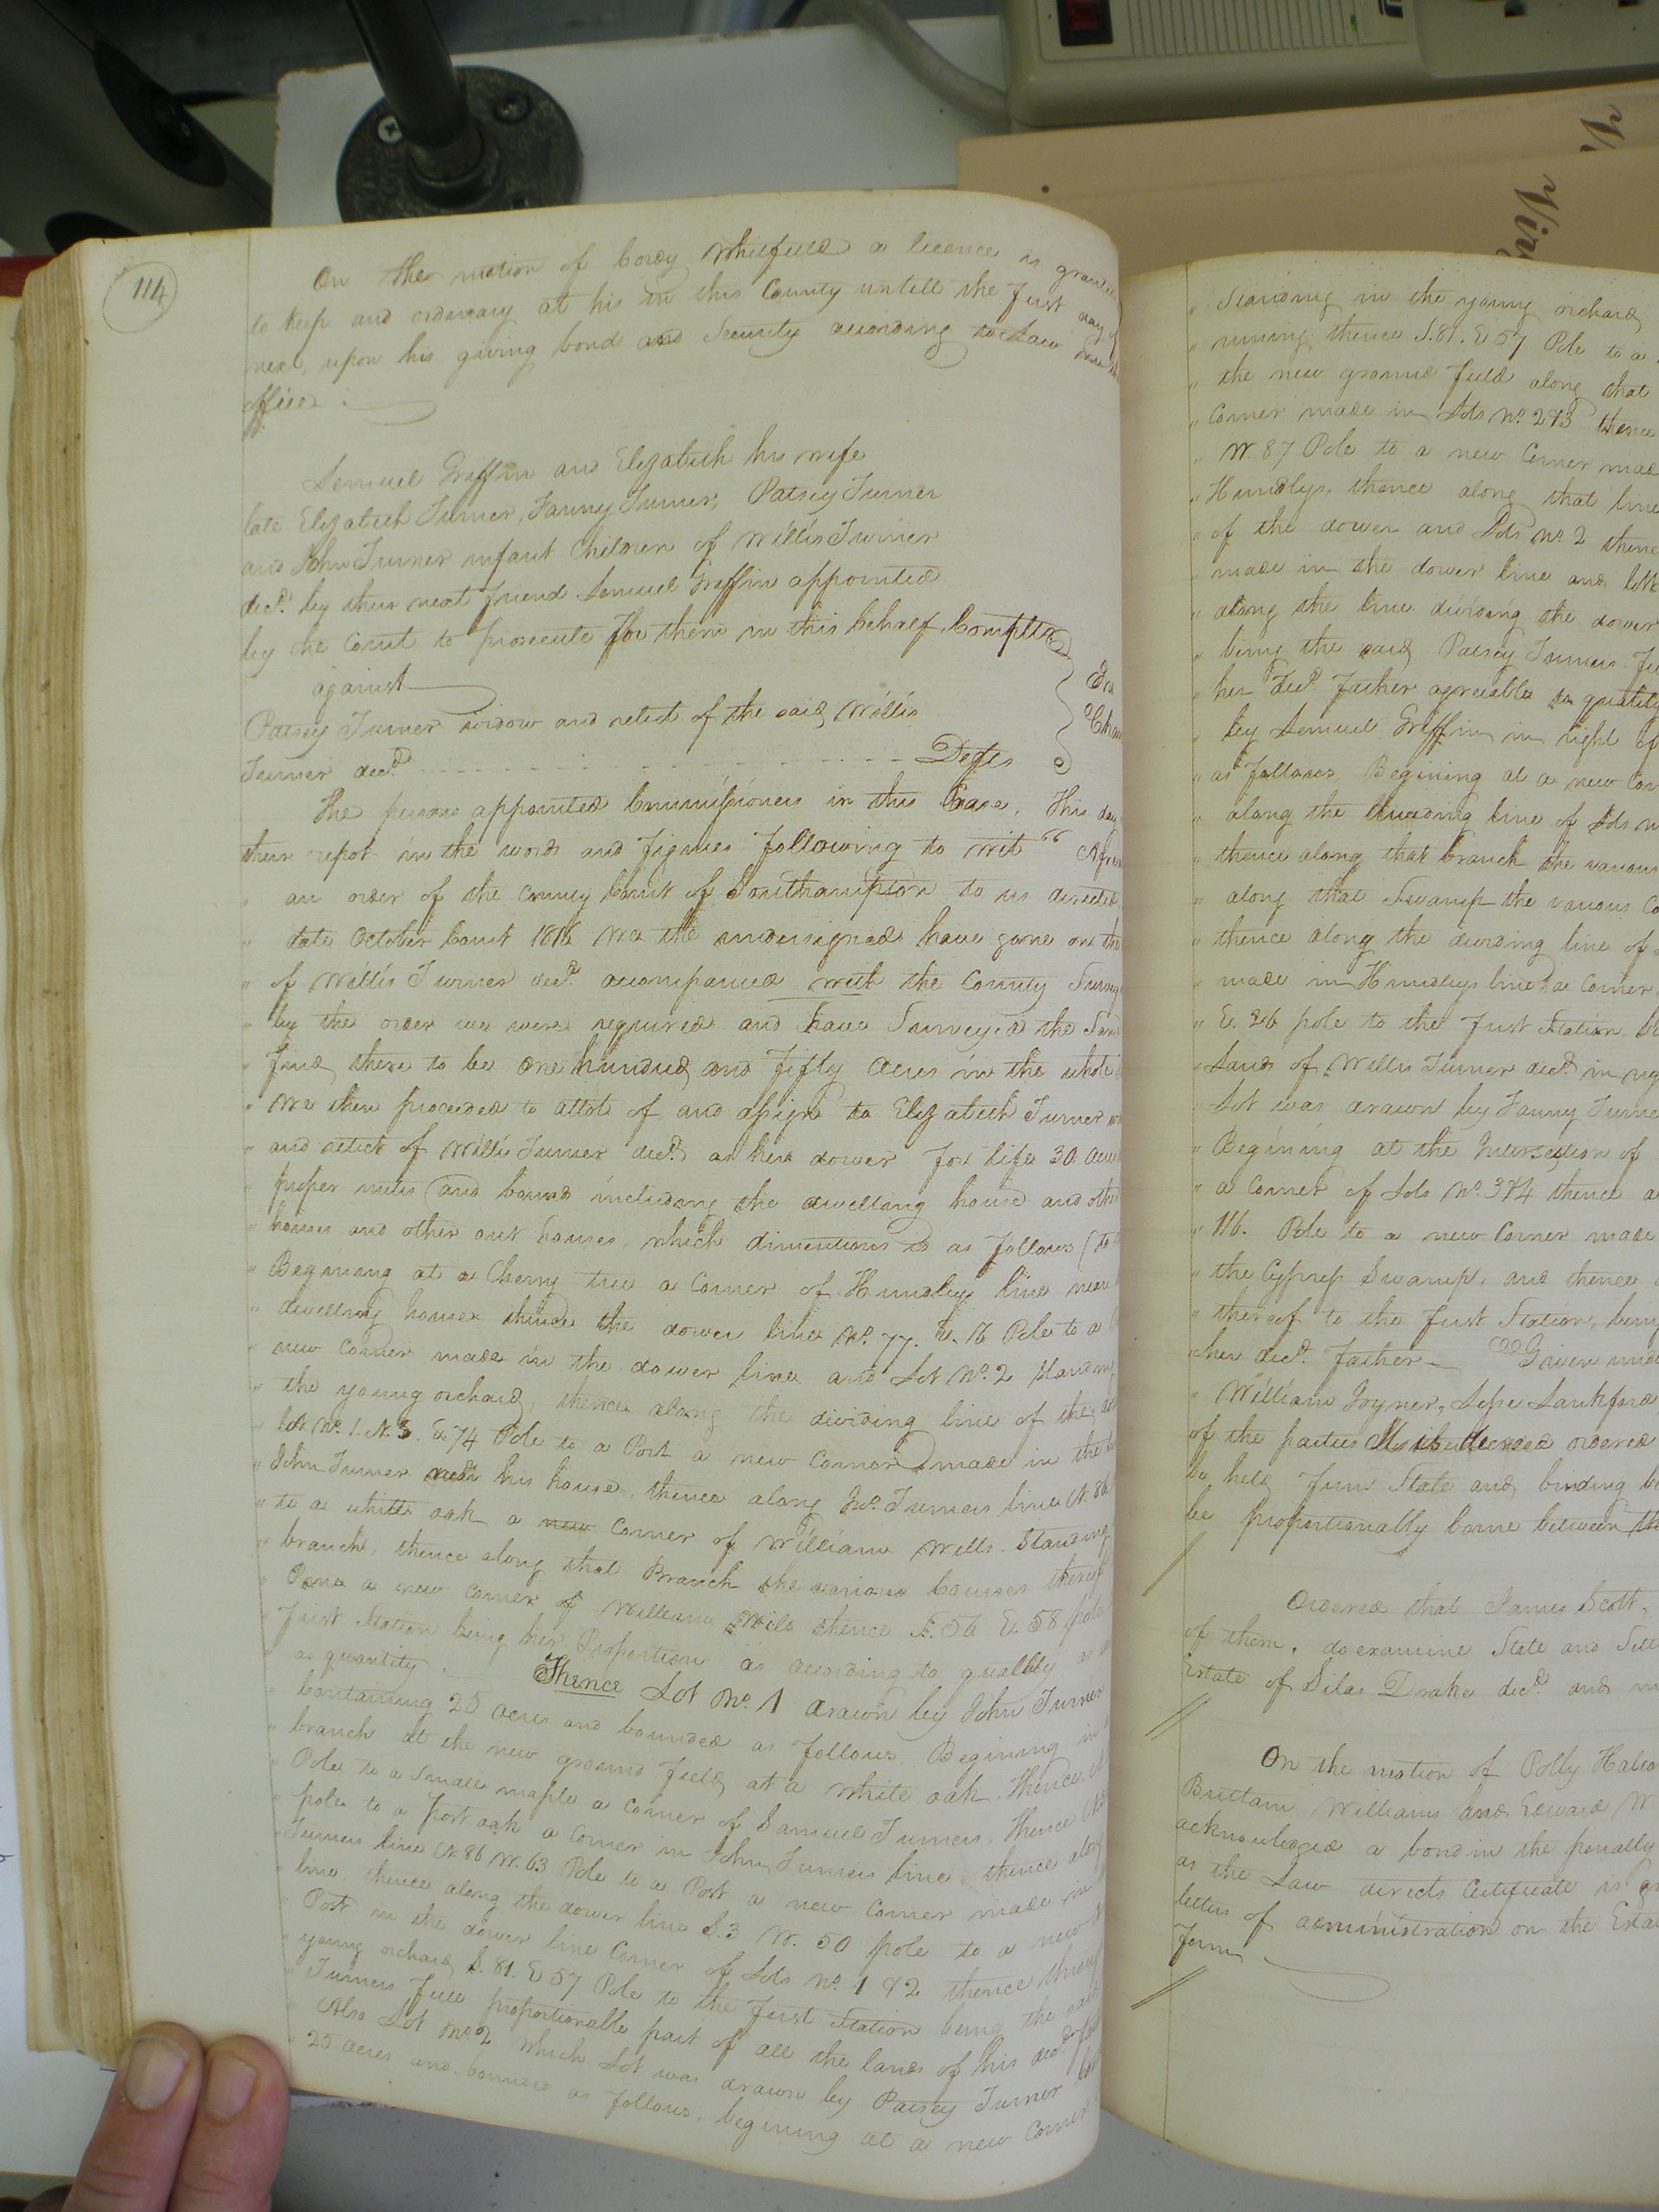 114
On the motion of Cordy Whitfield a licence is
to keep and ordinary at his in this County untill the first day of
next, upon his giving bond and Security according to Law
office
Lemuel Griffin and Elizabeth his wife
late Elizabeth Turner, Fanny Turner, Patsey Turner
and John Turner infant Children of Willis Turner
decd. by their next friend Lemuel Griffin appointed
by the Court to prosecute for them in this behalf. Complts
against
Patsey Turner widow and relict of the said Willis
Turner decd. Defts
In
Chan
The persons appointed Commissioners in this Case, this day
their repot in the words and figures following to wit "
" an order of the County Court of Southampton to us directed
" date October Court 1816 We the undersigned have gone on the
" of Willis Turner decd. accompanied with the County
" by the order we were required and have Surveyed the
" find there to be one hundred and fifty acres in the whole
" We then proceeded to allot of and assign to Elizabeth Turner
" and relict of Willis Turner decd. as her dower for life 30 acres
" proper metes and bounds including the dwelling house and other
" houses and other out houses, which dimentions is as follows (to
" Begining at a Cherry tree a Corner of Hundleys line near
" dwelling house thence the dower line No. 77. W. 16 Pole to a
" new Corner made in the dower line and Lot No. 2 standing
" the young orchard, thence along the dividing line of the
" lot No. 1. N. 3. E 74 Pole to a Post a new Corner made in the
" John Turner near his house, thence along Jno. Turners line N. 86
" to a white oak a new Corner of William Wells. Standing
" branch, thence along that Branch the various Courses thereof
" Pine a new Corner of William Wils thence S. 56 E. 58 pole
" first Station being her Proportion as according to quallity as
" as quantity. Thence Lot No. 1 drawn by John Turner
" Containing 25 acres and bounded as follows, Begining in
" branch at the new ground field at a white oak, thence
" Pole to a small maple a corner of Samuel Turners, thence
" pole to a post oak a Corner in John Turners line thence along
" Turners line N. 86 W. 63 Pole to a Post a new Corner made in
" line, thence along the dower line S. 3 W. 50 pole to a new
" Post in the dower line Corner of Lots No. 1 & 2 thence through
" young orchard S. 81. E 57 Pole to the first Station being the said
" Turners full proportionable part of all the lands of his decd.
" Also Lot No. 2 which Lot was drawn by Patsey Turner
" 25 acres and bounded as follows, begining at a new Corner
" Standing in the young orchard
" nuing thence S. 81. E 57 Pole to a
" the new ground field along that
" Corner made in Lots No. 2 & 3 thence
" W. 87 Pole to a new Corner made
" Hundlys, thence along that line
" of the dower and Lots No. 2 thence
" made in the dower line and
" along the line dividing the dower
" being the said Patsey Turners
" her Decd. Father agreeable to quality
" by Lemuel Griffin in right of
" as follows, Begining at a new Cor
" along the dividing line of Lots
" thence along that branch the various
" along that Swamp the various Co
" thence along the dividing line of
" made in Hundleys line a Corner
" E. 26 pole to the first Station
" Lands of Willis Turner decd. in
" Lot was drawn by Fanny Turner
" Begining at the Intersection of
" a Corner of Lots No. 3 & 4 thence a
" 116. Pole to a new Corner made
" the Cypress Swamp, and thence
" thereof to the first Station, being
" her decd. father Given unde
" William Joyner, Jesse Lankford
of the parties It is decreed ordered
be held firm State and binding be
be proportionally borne between the
Ordered that James Scott,
of them, do examine State and Sett
Estate of Silas Drake decd. and
On the motion of Polly
Brittain Williams and Edward W
acknowledged a bond in the penalty
as the Law directs Certificate is gr
letters of administration on the Esta
form